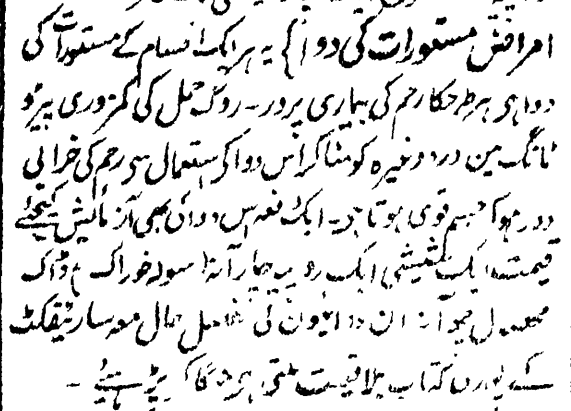 امراض مستورات کی دوا} یہ ہر ایک اقسام کے مستورات کی
دوا ہی ہر طرحکا رحم کی بیماری پردر۔ روگ حمل کی کمزوری پیڑو
ٹانگ مین درد وغیرہ کو مٹا کر اس دوا کی استعمال سی رحم کی خرابی
دور ہوکر جسم قوی ہوتا ہے۔ ایک دفعہ اس دوا کی بھی آزمائش کیجئے
قیمت ایک شیشی ایک روپیہ چار آنہ سولہ خوراک ڈاک
محصول چھ آنہ ان دوائیون کی مفصل حال معہ سارٹیفکٹ
کے پوری کتاب بلا قیمت ملتی ہر منگا کر پڑہئے -